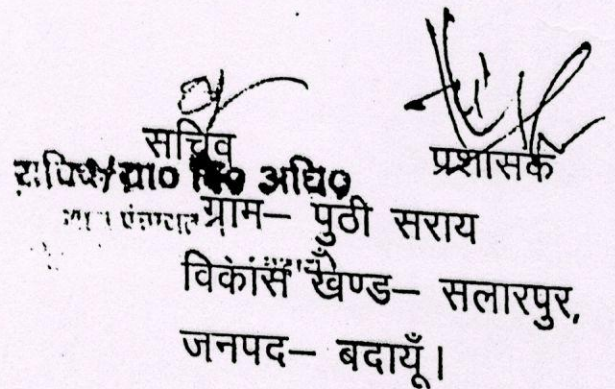 सचिव
प्रशासक
सचिव/ग्रा० वि० अधि०
ग्राम– पुठी सराय
विकास खण्ड– सलारपुर,
जनपद– बदायूँ।